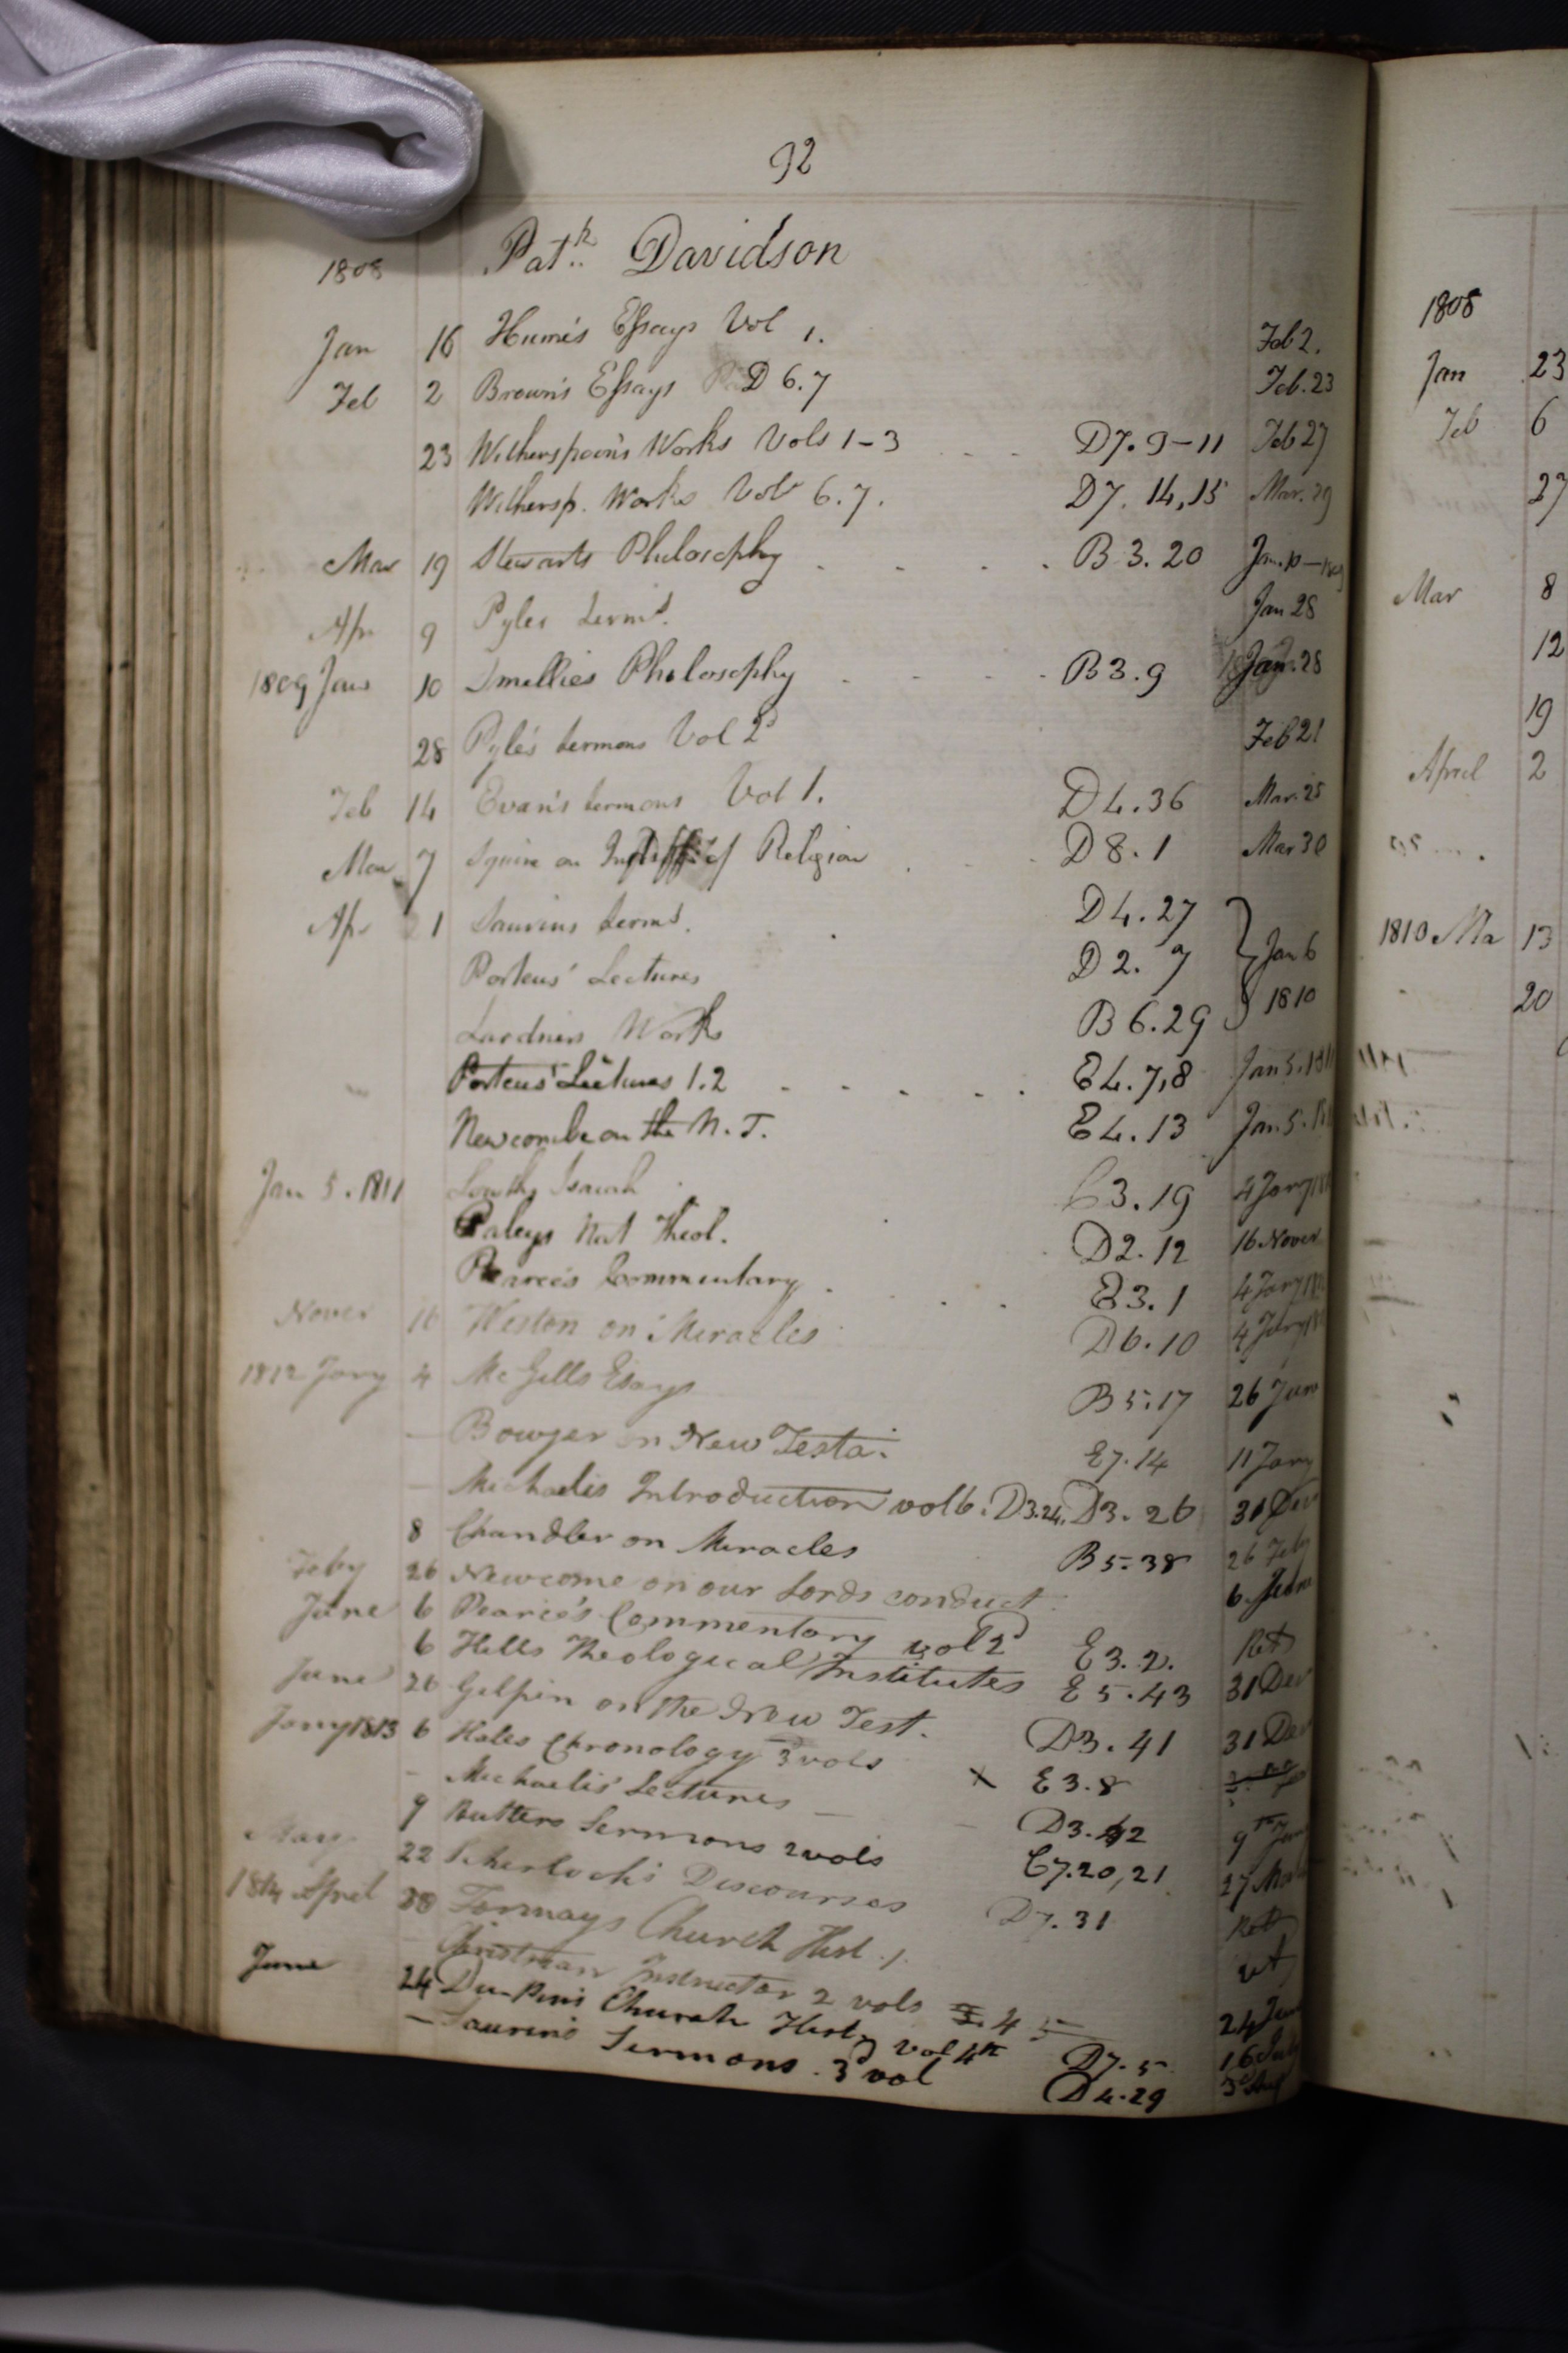 92
1808 Patk Davidson
Jan 16 Hume's Essays Vol 1. Feb 2.
Feb 2 Brown's Essays D 6.7 Feb. 23
23 Witherspoon's Works Vols 1-3 D7. 9-11 Feb 27
Withersp. Works Vol 6.7. D7. 14,15 Mar. 29
Mar 19 Stewarts Philosophy B 3. 20 Jan. 10
Apr 9 Pyles Serms. Jan 28
1809 Jan 10 Smellies Philosophy B3.9 Jan. 28
28 Pyle's Sermons Vol 2d Feb 21
Feb 14 Evan's Sermons Vol 1. D4.36 Mar. 25
Mar 7 Squire on of Religion D8.1 Mar 30
Apr 1 Saurins Serms. D4.27
Porteus' Lectures D2.7 Jan 6
Lardners Works B6.29 1810
Porteus' Lectures 1.2 E4.7,8 Jan 5. 1811
Newcombe on the N. T. E4.13 Jan. 5.
Jan 5. 1811 Lowths Isaiah C3.19 4 Jany
Paleys Nat Theol. D2.12 16 Nover
Pearce's Commentary E3.1 4 Jany
Novr 16 Weston on Miracles D6.10 4 Jany
1812 Jany 4 McGills Essays B5.17 26 June
— Bowyer on New Testa. E7.14 11 Jany
— Michaelis Introduction vol 6. D3.24. D3.26 31 Dec
8 Chandler on Miracles B5.38 26 Feby
Feby 26 Newcome on our Lords conduct 6 June
June 6 Pearce's Commentary vol 2d E3.2. Retd
6 Hills Theological Institutes E5.43 31 Dec
June 26 Gilpin on the New Test. D3.41 31 Dec
Jany 1813 6 Hales Chronology 3 vols x E3.8
- Michaelis' Lectures — D3.42 9th Jan
9 Butlers Sermons 2 vols C7.20,21 27 Mar
May 22 Sherlock's Discourses D7.31 Retd
1814 April 30 Formays Church Hist. 1. ret
Christian Instructor 2 vols 4 5 24 June
June 24 Du-Pin's Church Histy vol 4th D7.5 16 July
— Saurin's Sermons. 3d vol D4.29 3d Aug
1808
Jan 23
Feb 6
27
Mar 8
12
19
April 2
1810 Ma 13
20